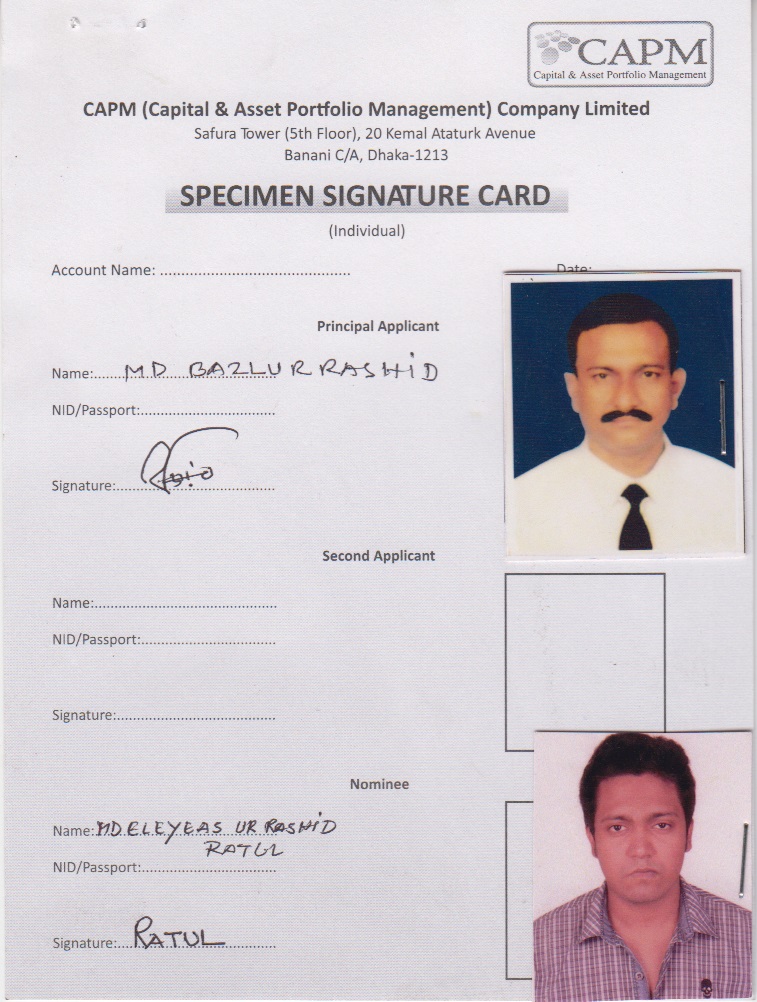 CAPM
Capital & Asset Portfolio Management
CAPM (Capital & Asset Portfolio Management) Company Limited
Safura Tower (5th Floor), 20 Kemal Ataturk Avenue
Banani C/A, Dhaka-1213
SPECIMEN SIGNATURE CARD
(Individual)
Account Name: ............................................
Date:
Principal Applicant
Name:......MD BAZLUR RASHID
NID/Passport:................................
Signature:......................................
Second Applicant
Name:...........................................
NID/Passport:................................
Signature:......................................
Nominee
Name: MD ELEYEAS UR RASHID
RATUL
NID/Passport:................................
Signature:....RATUL..............